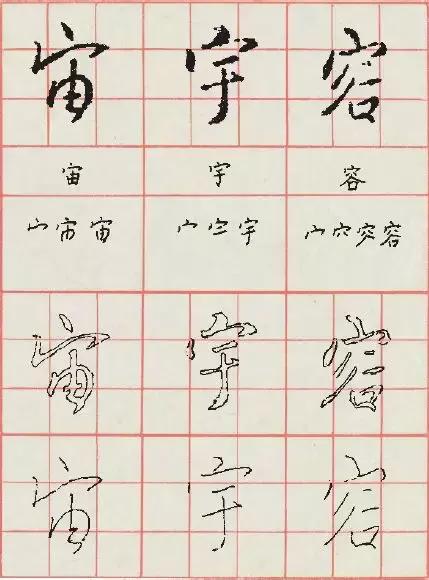 宙 宇 容
宙 宇 容
宀 宙 宀 宇 宀 穴 容
宙 宇 容
宙 宇 容